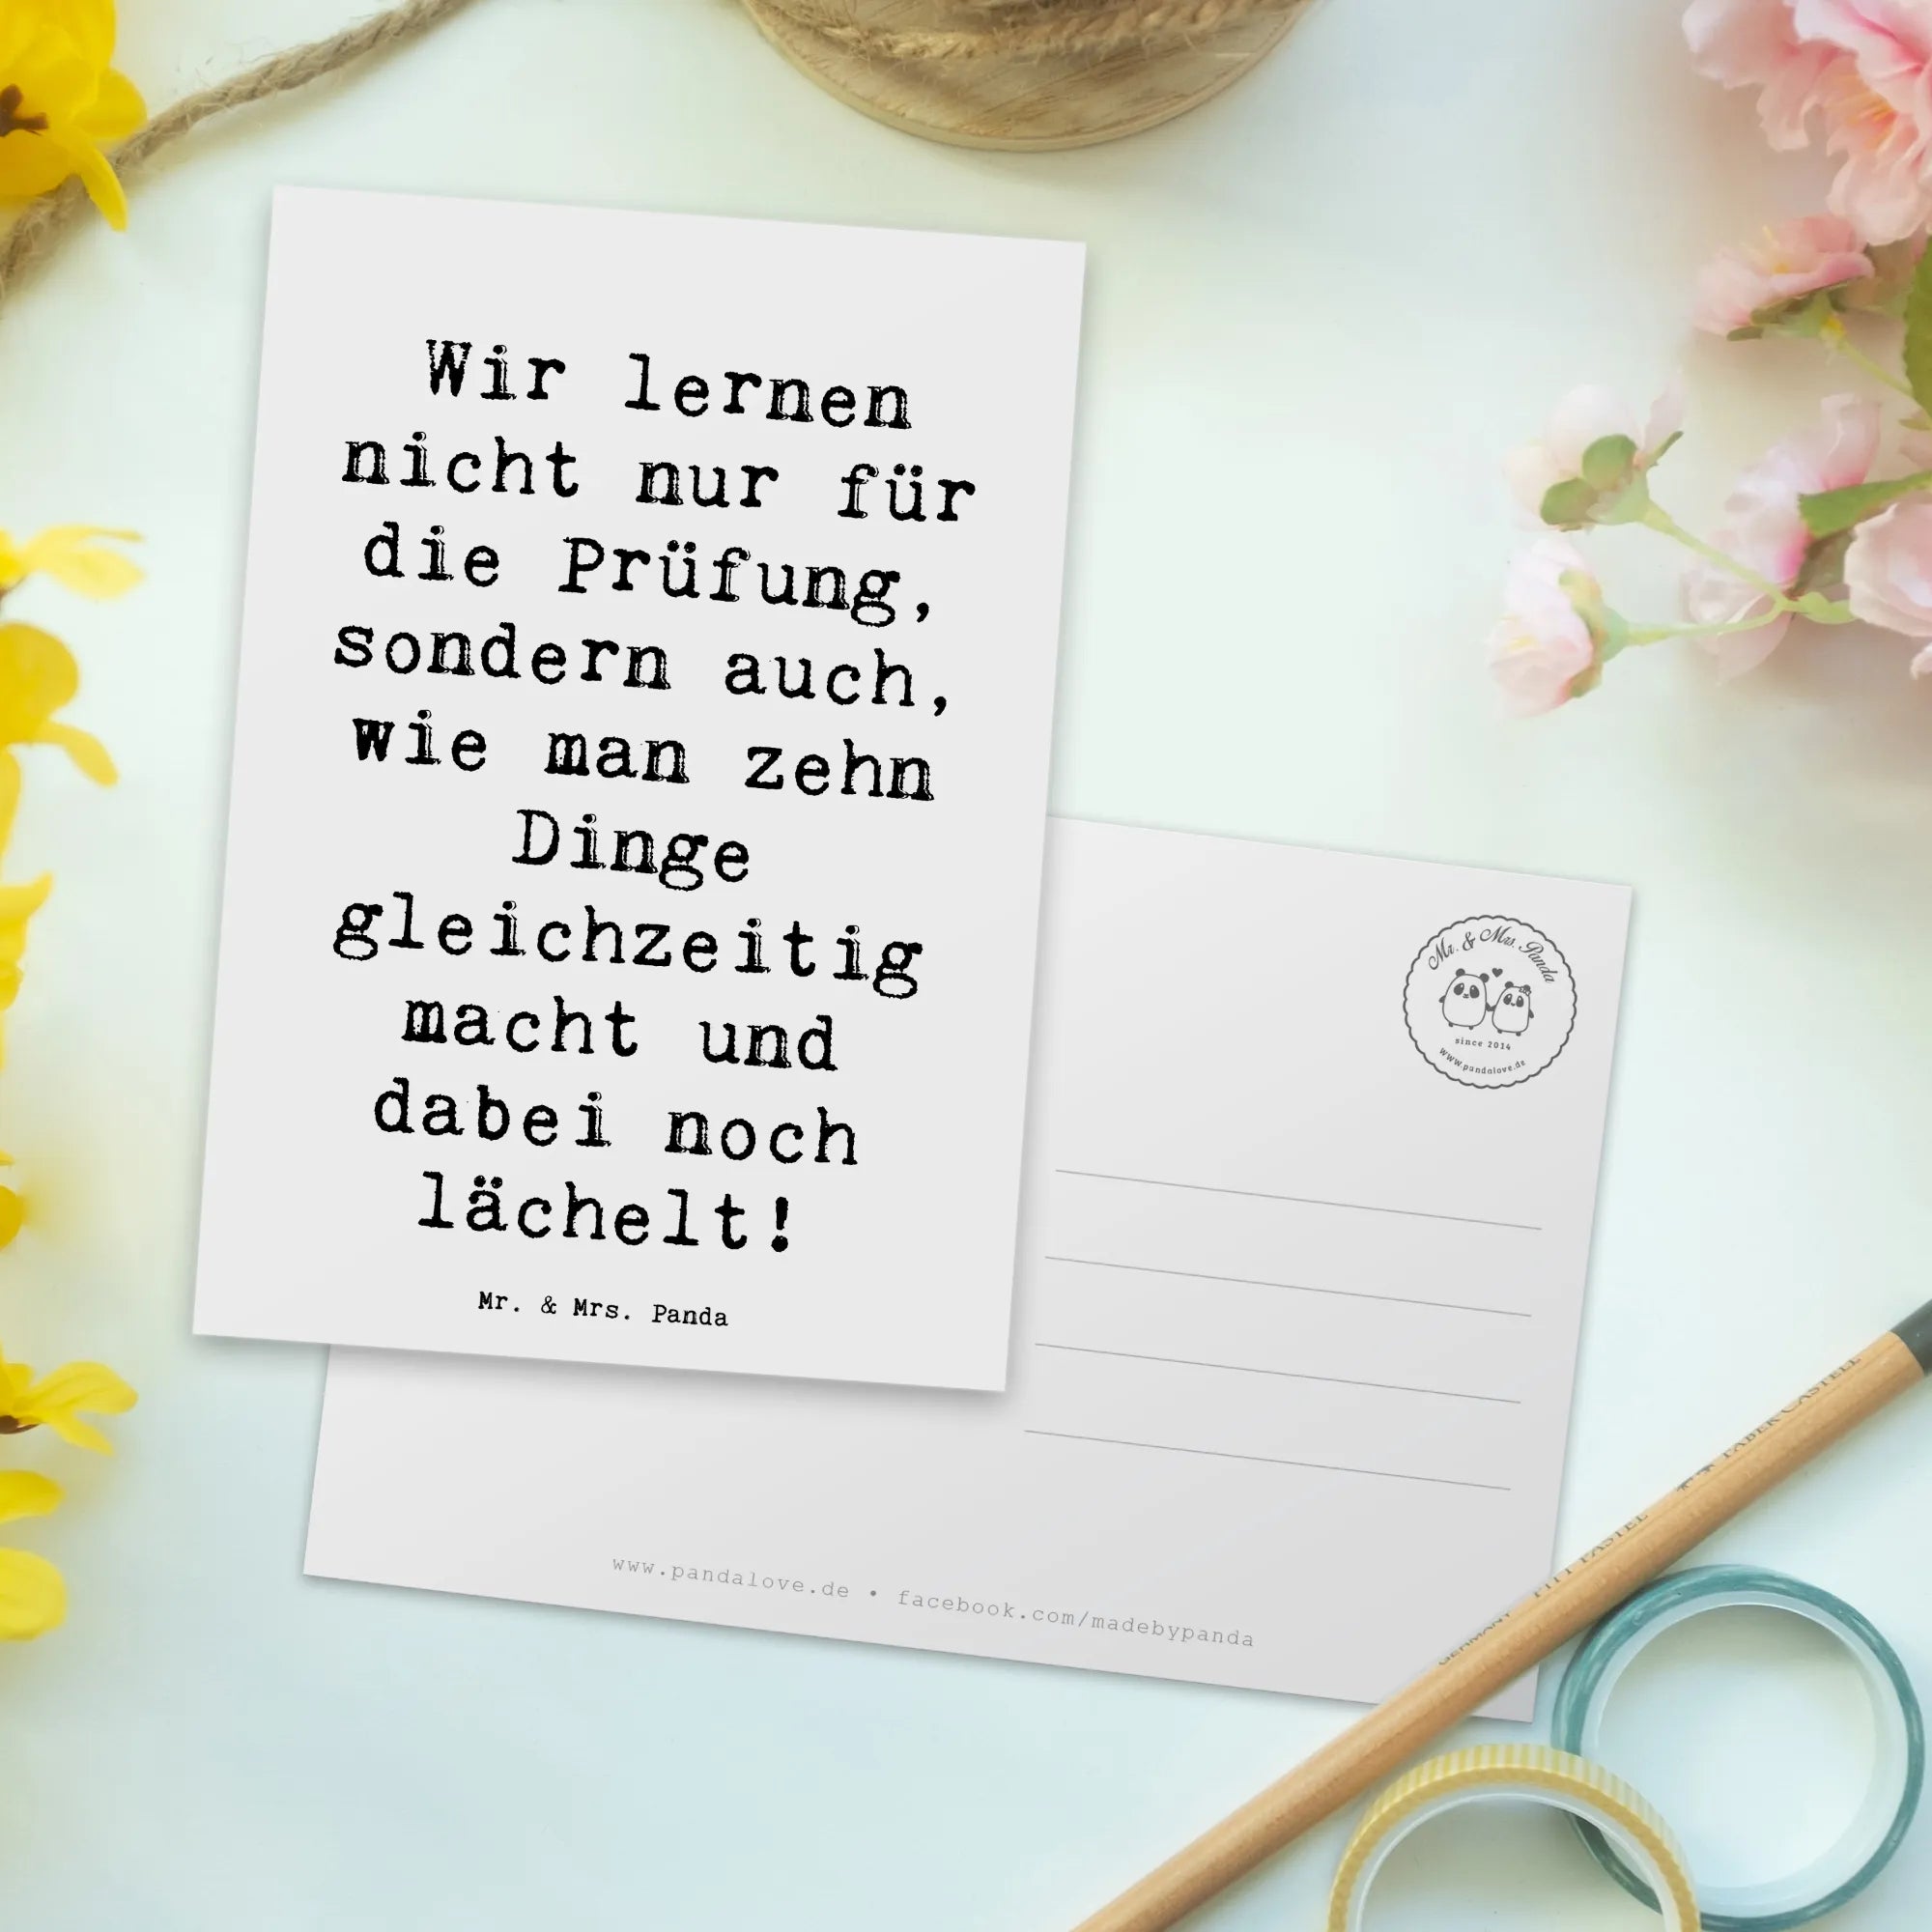 Wir lernen
nicht nur für
die Prüfung,
sondern auch,
wie man zehn
Dinge
gleichzeitig
macht und
dabei noch
lächelt!
Mr. & Mrs. Panda
Mr. & Mrs. Panda
since 2014
www.pandalove.de
www.pandalove.de • facebook.com/madebypanda
GERMANY PITT PASTEL FABER-CASTELL